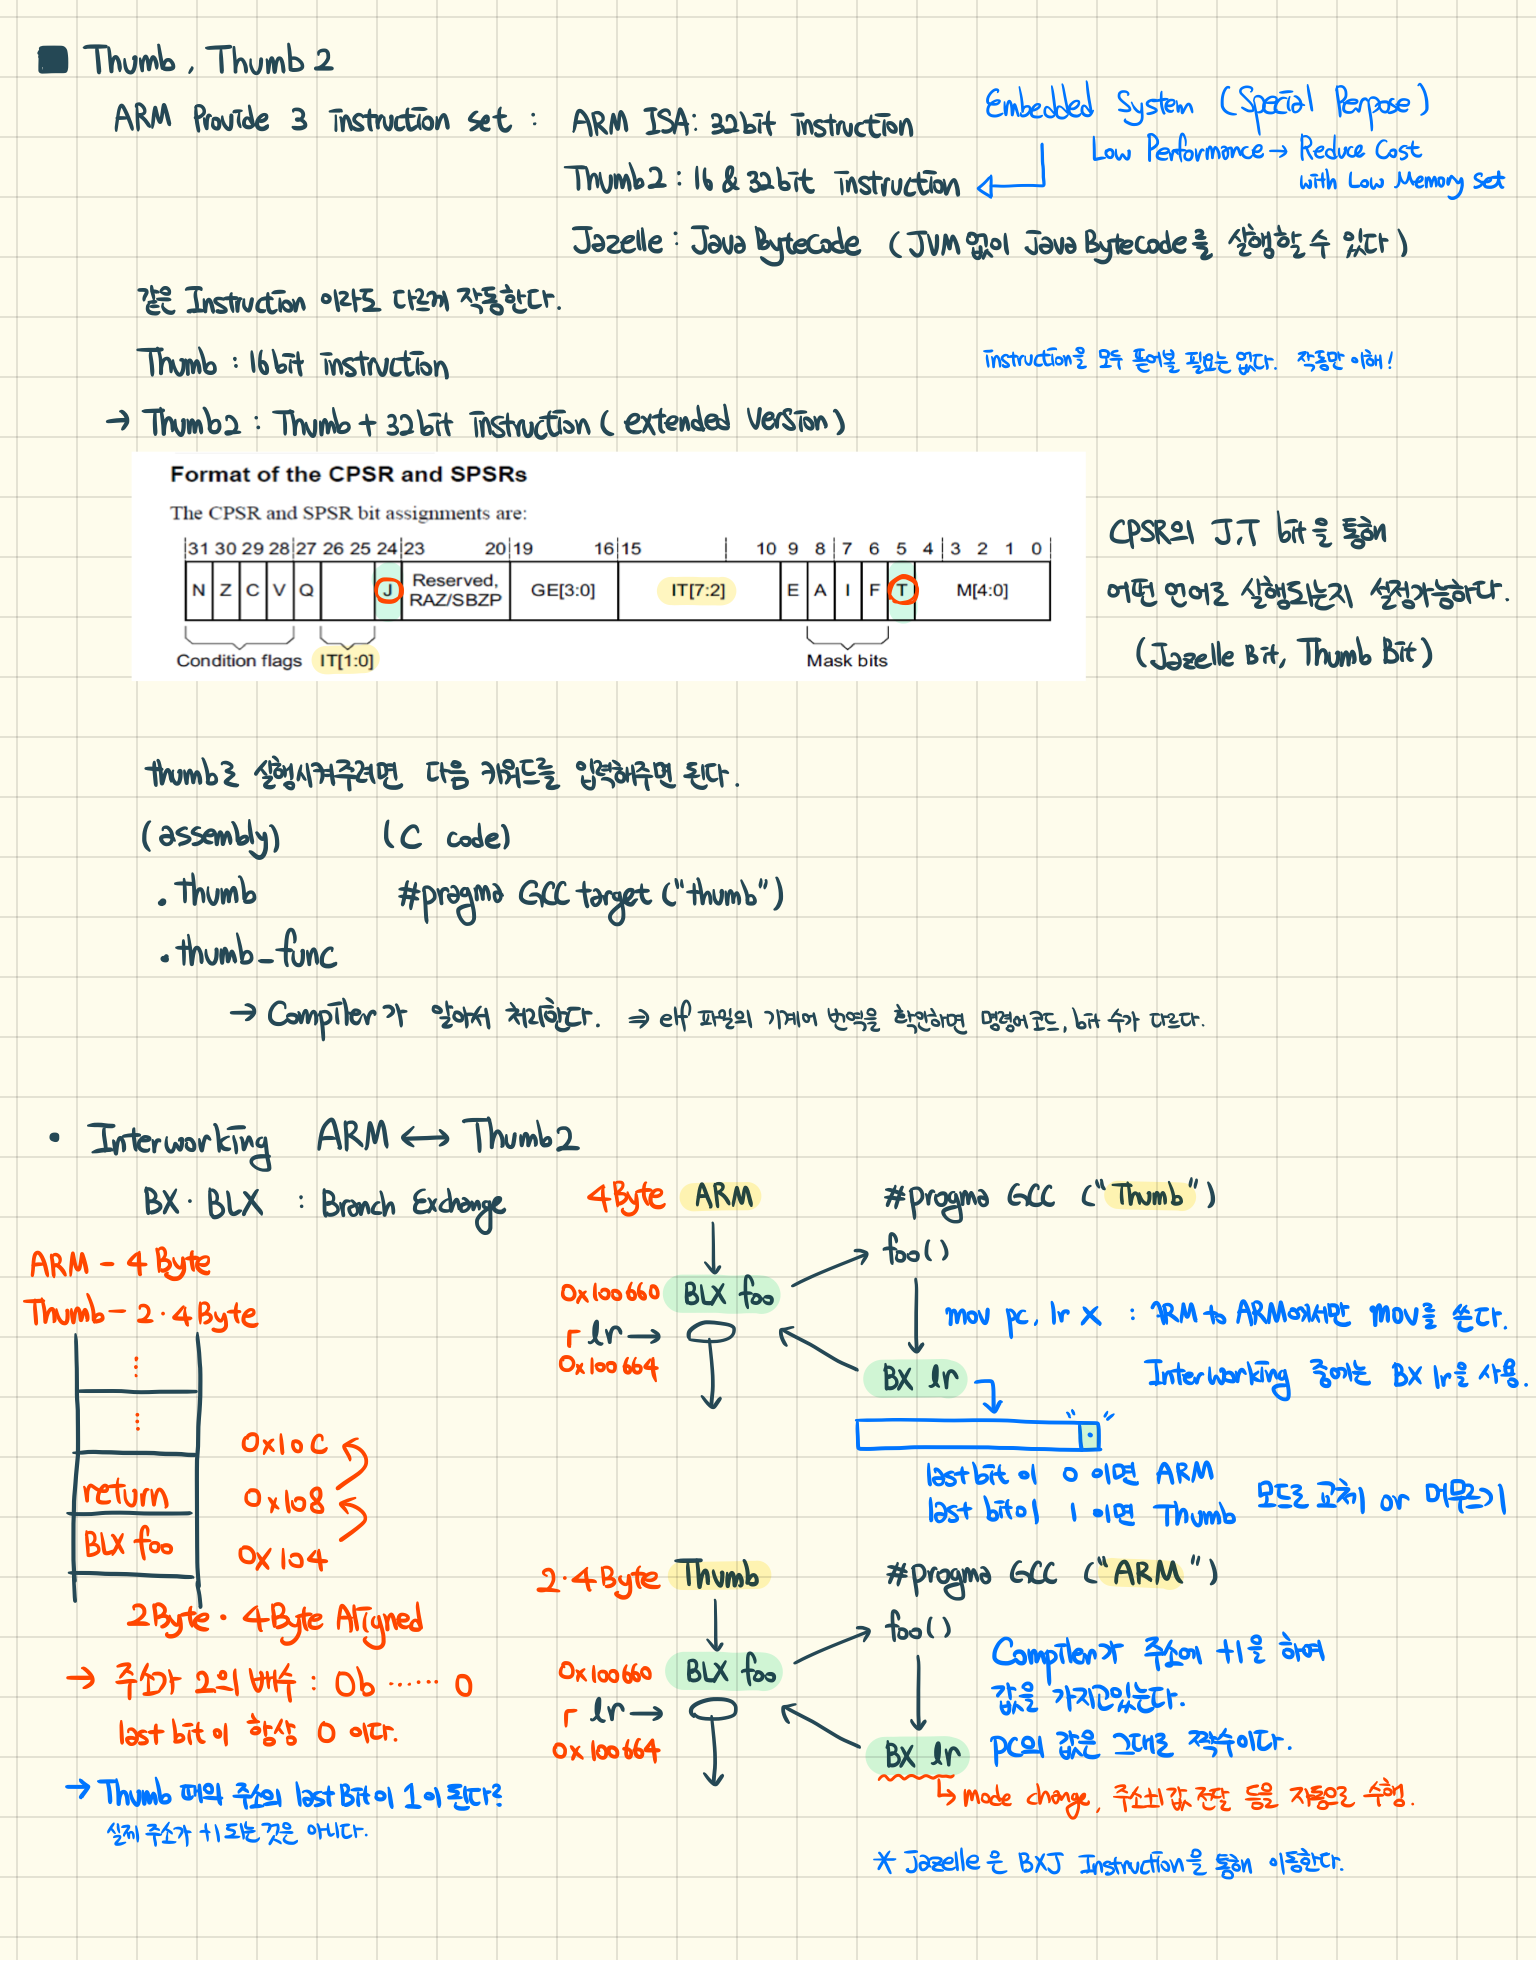 ■ Thumb, Thumb 2
ARM Provide 3 instruction set : ARM ISA: 32bit instruction
Embedded System (Special Perpose)
Low Performance → Reduce Cost
with Low Memory Set
Thumb2 : 16 & 32bit instruction
Jazelle : Java ByteCode (JVM없이 Java Bytecode를 실행할 수 있다)
같은 Instruction 이라도 다르게 작동한다.
Thumb : 16bit instruction
instruction을 모두 뜯어볼 필요는 없다. 작동만 이해!
→ Thumb2 : Thumb + 32bit instruction (extended Version)
Format of the CPSR and SPSRs
The CPSR and SPSR bit assignments are:
31 30 29 28 27 26 25 24 23 20 19 16 15 10 9 8 7 6 5 4 3 2 1 0
N Z C V Q J Reserved, RAZ/SBZP GE[3:0] IT[7:2] E A I F T M[4:0]
Condition flags IT[1:0] Mask bits
CPSR의 J,T bit을 통해
어떤 언어로 실행되는지 설정가능하다.
(Jazelle Bit, Thumb Bit)
thumb로 실행시켜주려면 다음 키워드를 입력해주면 된다.
(assembly) (C code)
. Thumb #pragma GCC target ("thumb")
. thumb_func
→ Compiler가 알아서 처리한다. ⇒ elf 파일의 기계어 번역을 확인하면 명령어 코드, bit 수가 다르다.
• Interworking ARM ↔ Thumb2
BX · BLX : Branch Exchange
ARM - 4 Byte
Thumb - 2 · 4 Byte
⋮
⋮
return
BLX foo
0x10C
0x108
0x104
2Byte · 4Byte Aligned
→ 주소가 2의 배수 : 0b ······ 0
last bit이 항상 0 이다.
→ Thumb 때와 주소의 last Bit이 1이 된다?
실제 주소가 +1 되는 것은 아니다.
4Byte ARM
#progma GCC ("Thumb")
foo()
0x100660 BLX foo
lr →
0x100664
BX lr
mov pc, lr X : ARM to ARM에서만 mov를 쓴다.
Interworking 중에는 BX lr을 사용.
last bit이 0 이면 ARM
last bit이 1 이면 Thumb
모드로 교체 or 머무르기
2·4Byte Thumb
#progma GCC ("ARM")
foo()
0x100660 BLX foo
lr →
0x100664
BX lr
Compiler가 주소에 +1을 하여
값을 가지고있는다.
pc의 값은 그대로 짝수이다.
↳ mode change, 주소±1 값 전달 등을 자동으로 수행.
* Jazelle은 BXJ Instruction을 통해 이동한다.